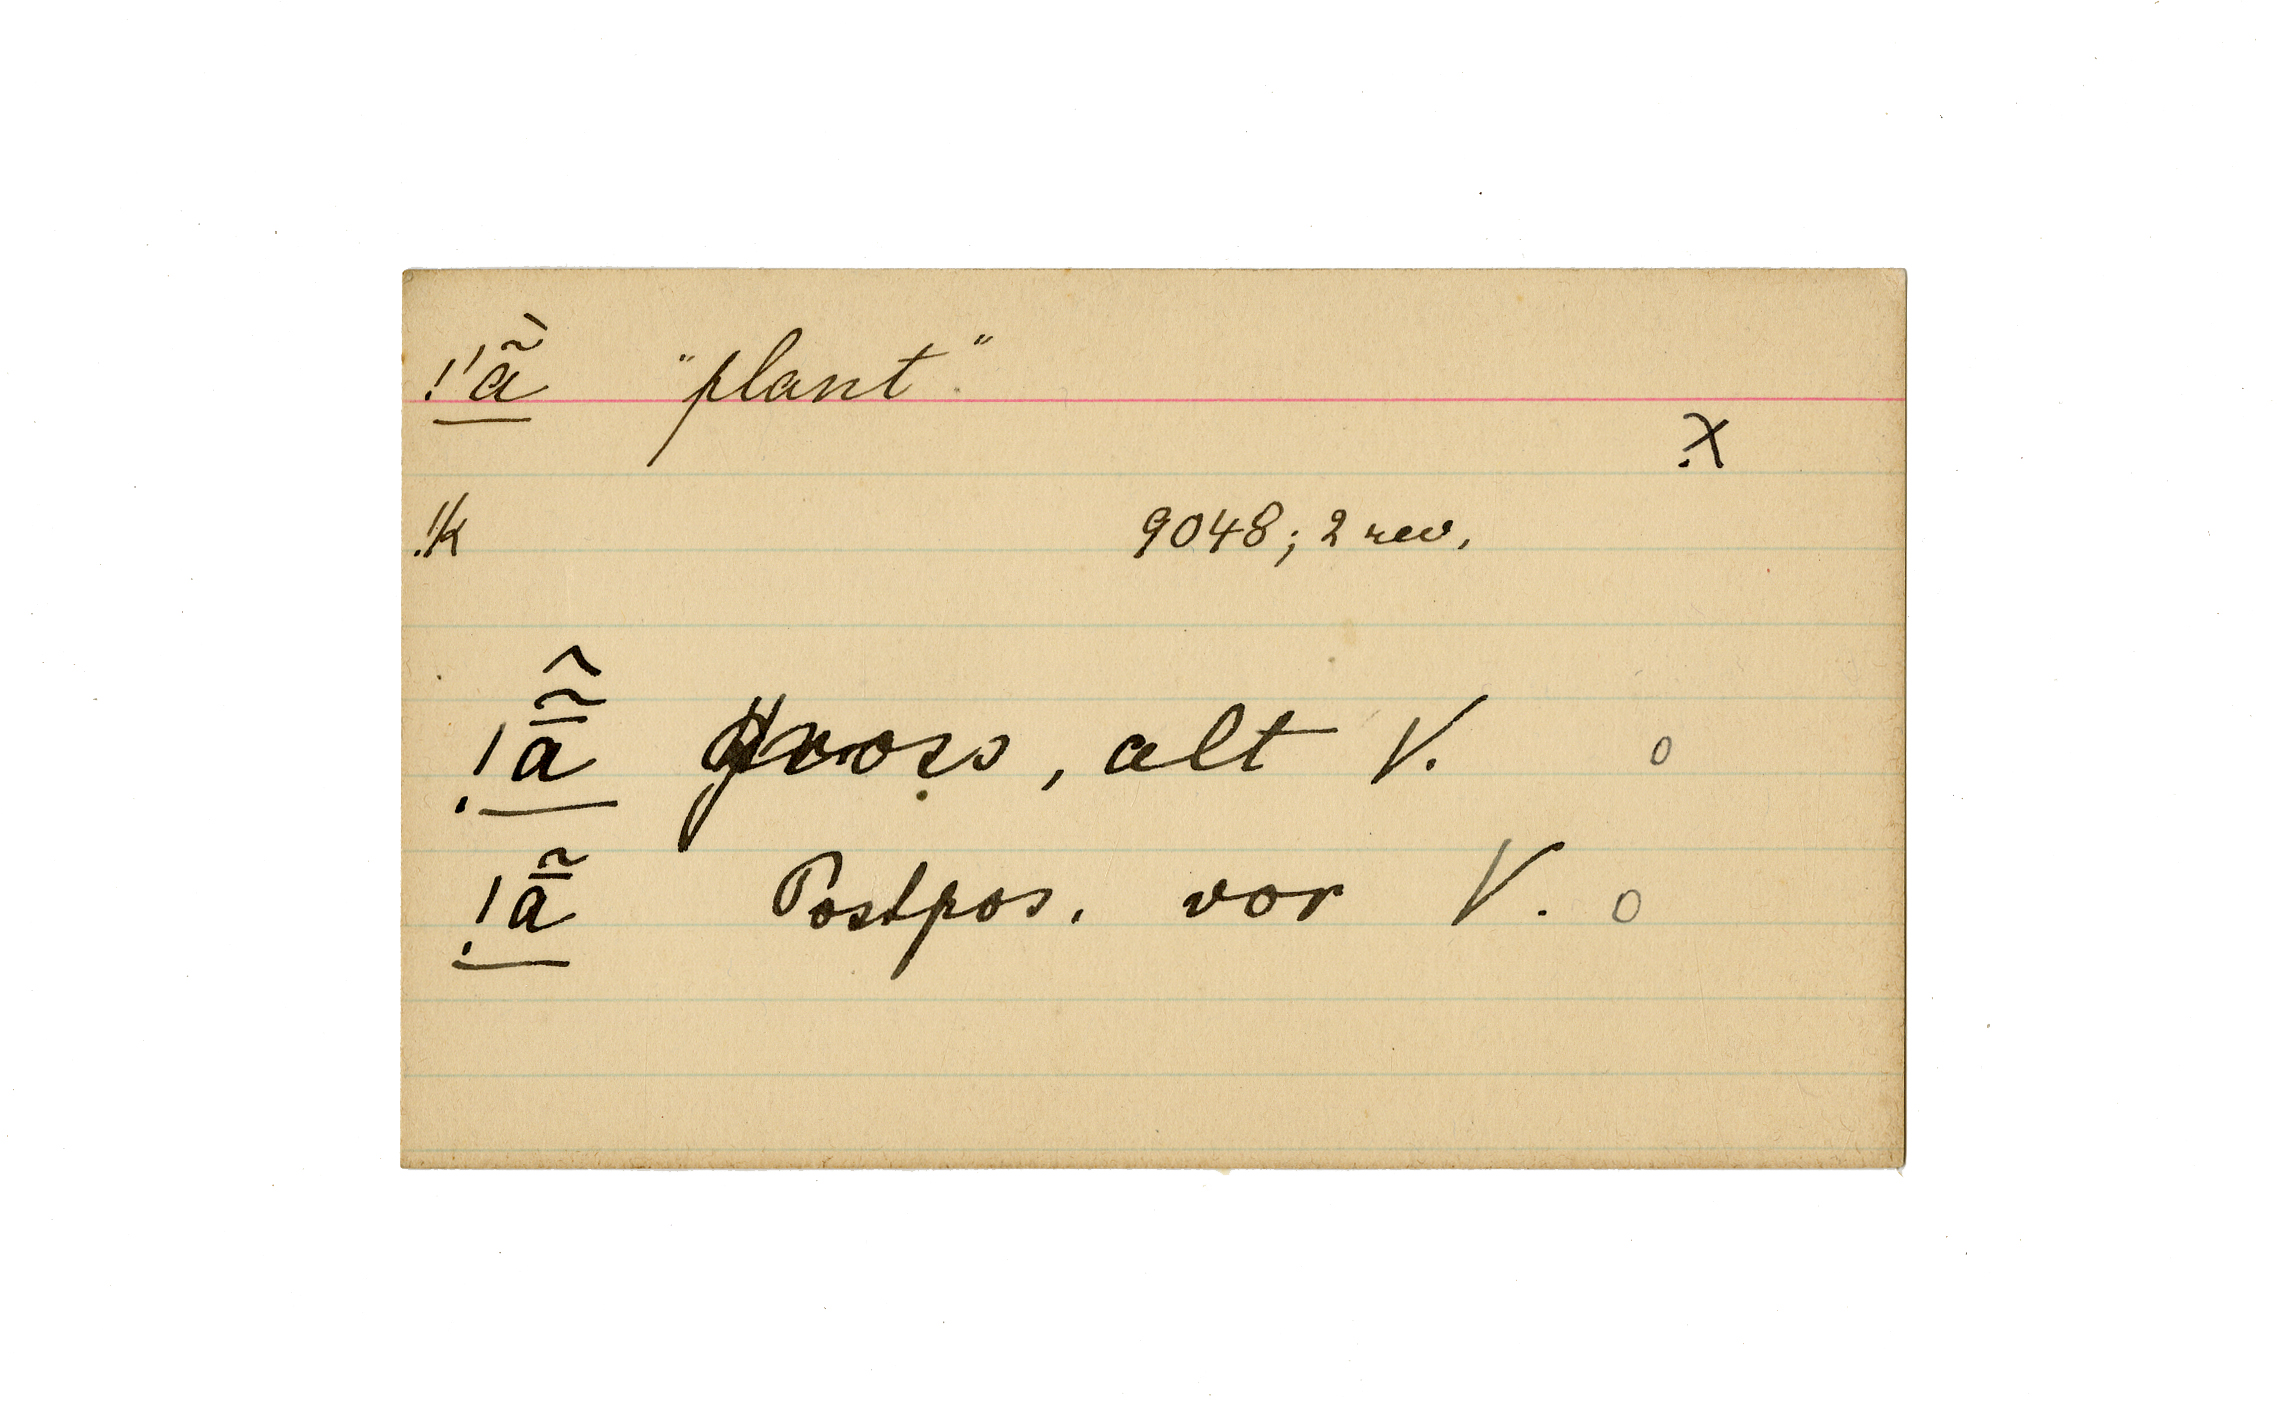 !'ã̀ "plant".
X
!k 9048; 2 rev.
!ã̄̂ gross, alt V. o
!ã̄ Postpos. vor V. o